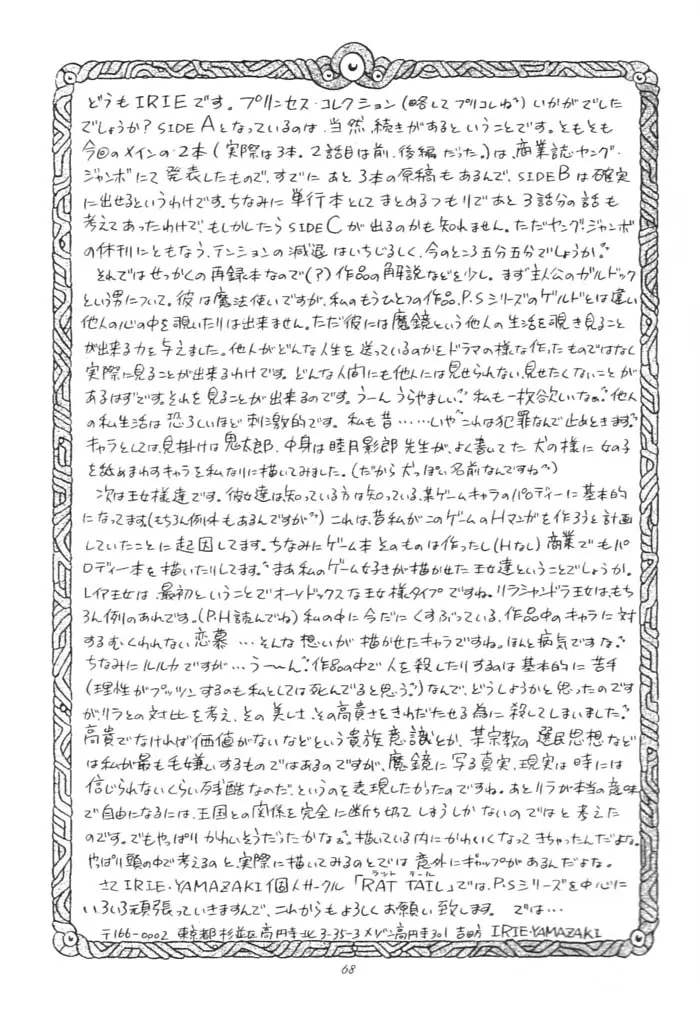 どうもIRIEです。プリンセス・コレクション(略してプリコレね)いかがでした
でしょうか?SIDE Aとなっているのは、当然、続きがあるということです。ともとも
今回のメインの2本(実際は3本。2話目は前、後編だった。)は、商業誌ヤング・
ジャンボにて発表したもので、すでにあと3本の原稿もあるんで、SIDE Bは確実
に出せるというわけです。ちなみに単行本としてまとめるつもりであと3話分の話も
考えてあったわけで、もしかしたらSIDE Cが出るのかも知れません。ただヤング・ジャンボ
の休刊にともなう、テンションの減退はいちじるしく、今のところ五分五分でしょうか。
それではせっかくの再録本なので(?)作品の解説などを少し。まず主人公のガルドック
という男について。彼は魔法使いですが、私のもうひとつの作品、P.Sシリーズのゲルドとは違い
他人の心の中を覗いたりは出来ません。ただ彼には魔鏡という他人の生活を覗き見ること
が出来る力を与えました。他人がどんな人生を送っているのかをドラマの様な作ったものではなく
実際に見ることが出来るわけです。どんな人間にも他人には見せられない、見せたくないことが
あるはずです。それを見ることが出来るのです。うーんうらやましい。私も一枚欲いなぁ 他人
の私生活は恐ろしいほど刺激的です。私も昔……いや これは犯罪なんで止めときます。
キャラとしては、見掛けは鬼太郎、中身は睦月影郎先生が、よく書いてた犬の様に女の子
を舐めまわすキャラを私なりに描いてみました。(だから犬っぽい名前なんですね)
次は王女様達です。彼女達は知っている方は知っている、某ゲームキャラのパロディーに基本的
になってます(もちろん例外もあるんですが)これは、昔私がこのゲームのHマンガを作ろうと計画
していたことに起因してます。ちなみにゲーム本そのものは作ったし(Hなし)商業でもパ
ロディー本を描いたりしてます。まあ私のゲーム好きが描かせた王女達ということでしょうか。
レイア王女は、最初ということでオーソドックスな王女様タイプですね。リラシャンドラ王女は、もち
ろん例のあれです。(P.H読んでね)私の中に今だにくすぶっている、作品中のキャラに対
するむくわれない恋慕…そんな想いが描かせたキャラですね。ほんと病気ですな。
ちなみにルルカですが…うーん。作品の中で人を殺したりするのは基本的に苦手
(理性がプッツンするのも私としては死んでると思う。)なんで、どうしようかと思ったのです
がリラとの対比を考え、その美しさ、その高貴さをきわだたせる為に殺してしまいました。
高貴でなければ価値がないなどという貴族意識とか、某宗教の選民思想など
は私が最も毛嫌いするものではあるのですが、魔鏡に写る真実、現実は時には
信じられないくらい残酷なのだ、というのを表現したかったのですね。あとリラが本当の意味
で自由になるには、王国との関係を完全に断ち切ってしまうしかないのではと考えた
のです。でもやっぱりかわいそうだったかなぁ。描いている内にかわいくなってきちゃったんだよな。
やっぱり頭の中で考えるのと、実際に描いてみるのとでは意外にギャップがあるんだよな。
さてIRIE・YAMAZAKI個人サークル「RAT TAIL」では、P.Sシリーズを中心に
いろいろ頑張っていきますんで、これからもよろしくお願い致します。では…
〒166-0002 東京都杉並区高円寺北3-35-3メゾン高円寺301 吉田方 IRIE・YAMAZAKI
68